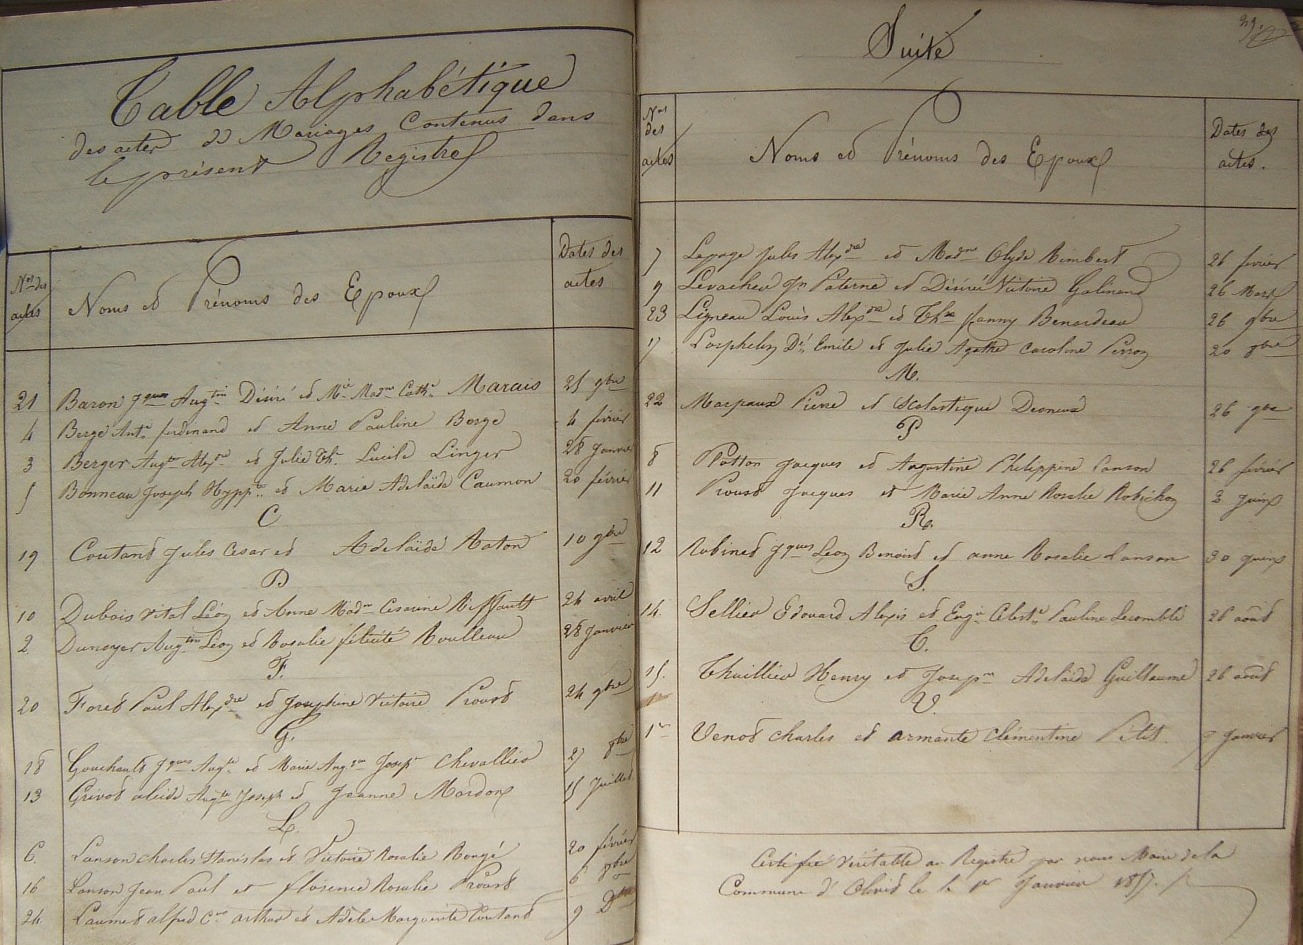 Table Alphabétique
des actes de Mariages Contenus dans
le présent Registre
Nos des
actes
Noms et Prénoms des Epoux
Dates des
actes
21 Baron Jques Augtin Désiré et Mie Madne Cathe Marais 25 9bre
4 Bergé Ante ferdinand et Anne Pauline Bergé 4 février
3 Berger Augte Alexre et Julie Th. Lucile Linger 28 Janvier
5 Bonneau Joseph Hyppte et Marie Adelaïde Caumon 20 février
C
19 Coutant Jules Cesar et Adelaïde Raton 10 9bre
D
10 Dubois Vital Léon et Anne Madne Cesarine Riffault 24 avril
2 Dunoyer Augtin Léon et Rosalie félicité Roulleau 28 Janvier
F.
20 Foret Paul Alexdre et Josephine Victoire Proust 24 9bre
G.
18 Gouchault Jques Augte et Marie Josephe Chevallier 27 8bre
13 Grivot alcide Augte Joseph et Jeanne Mardon 15 Juillet
L.
6 Lanson charles Stanislas et Victoire Rosalie Rongé 20 février
16 Lanson Jean Paul et florence Rosalie Proust 6
24 Laumet alfred arthur et Adèle Marguerite Coutant 9 Dbre
Suite
Nos
des
actes
Noms et Prénoms des Epoux
Dates des
actes.
7 Lepage Jules Alexdre et Madne Clyde Rimbert 26 février
9 Levacher Jn Paterne et Désirée Victoire Galinand 26 Mars
23 Ligneau Louis Alexdre et Thse fanny Benardeau 26 9bre
17 Lorphelin Dé Emile et Julie Agathe Caroline Perron 20 8bre
M.
22 Marpaux Pierre et Scolastique Desneux 26 9bre
P
8 Potton Jacques et Augustine Philippine Lanson 26 février
11 Proust Jacques et Marie Anne Rosalie Robichon 3 Juin
R.
12 Robinet Jques Léon Benoist et anne Rosalie Lanson 30 Juin
S.
14. Sellier Edouard Alexis et Engie Celeste Pauline Lecomble 26 août
T.
15. Thuillier Henry et Josephne Adelaïde Guillaume 26 août
V.
1er Venot charles et armante Clémentine Petit. Janvier
Certifié véritable au Registre par nous Maire de la
Commune d'Olivet le 1er Janvier